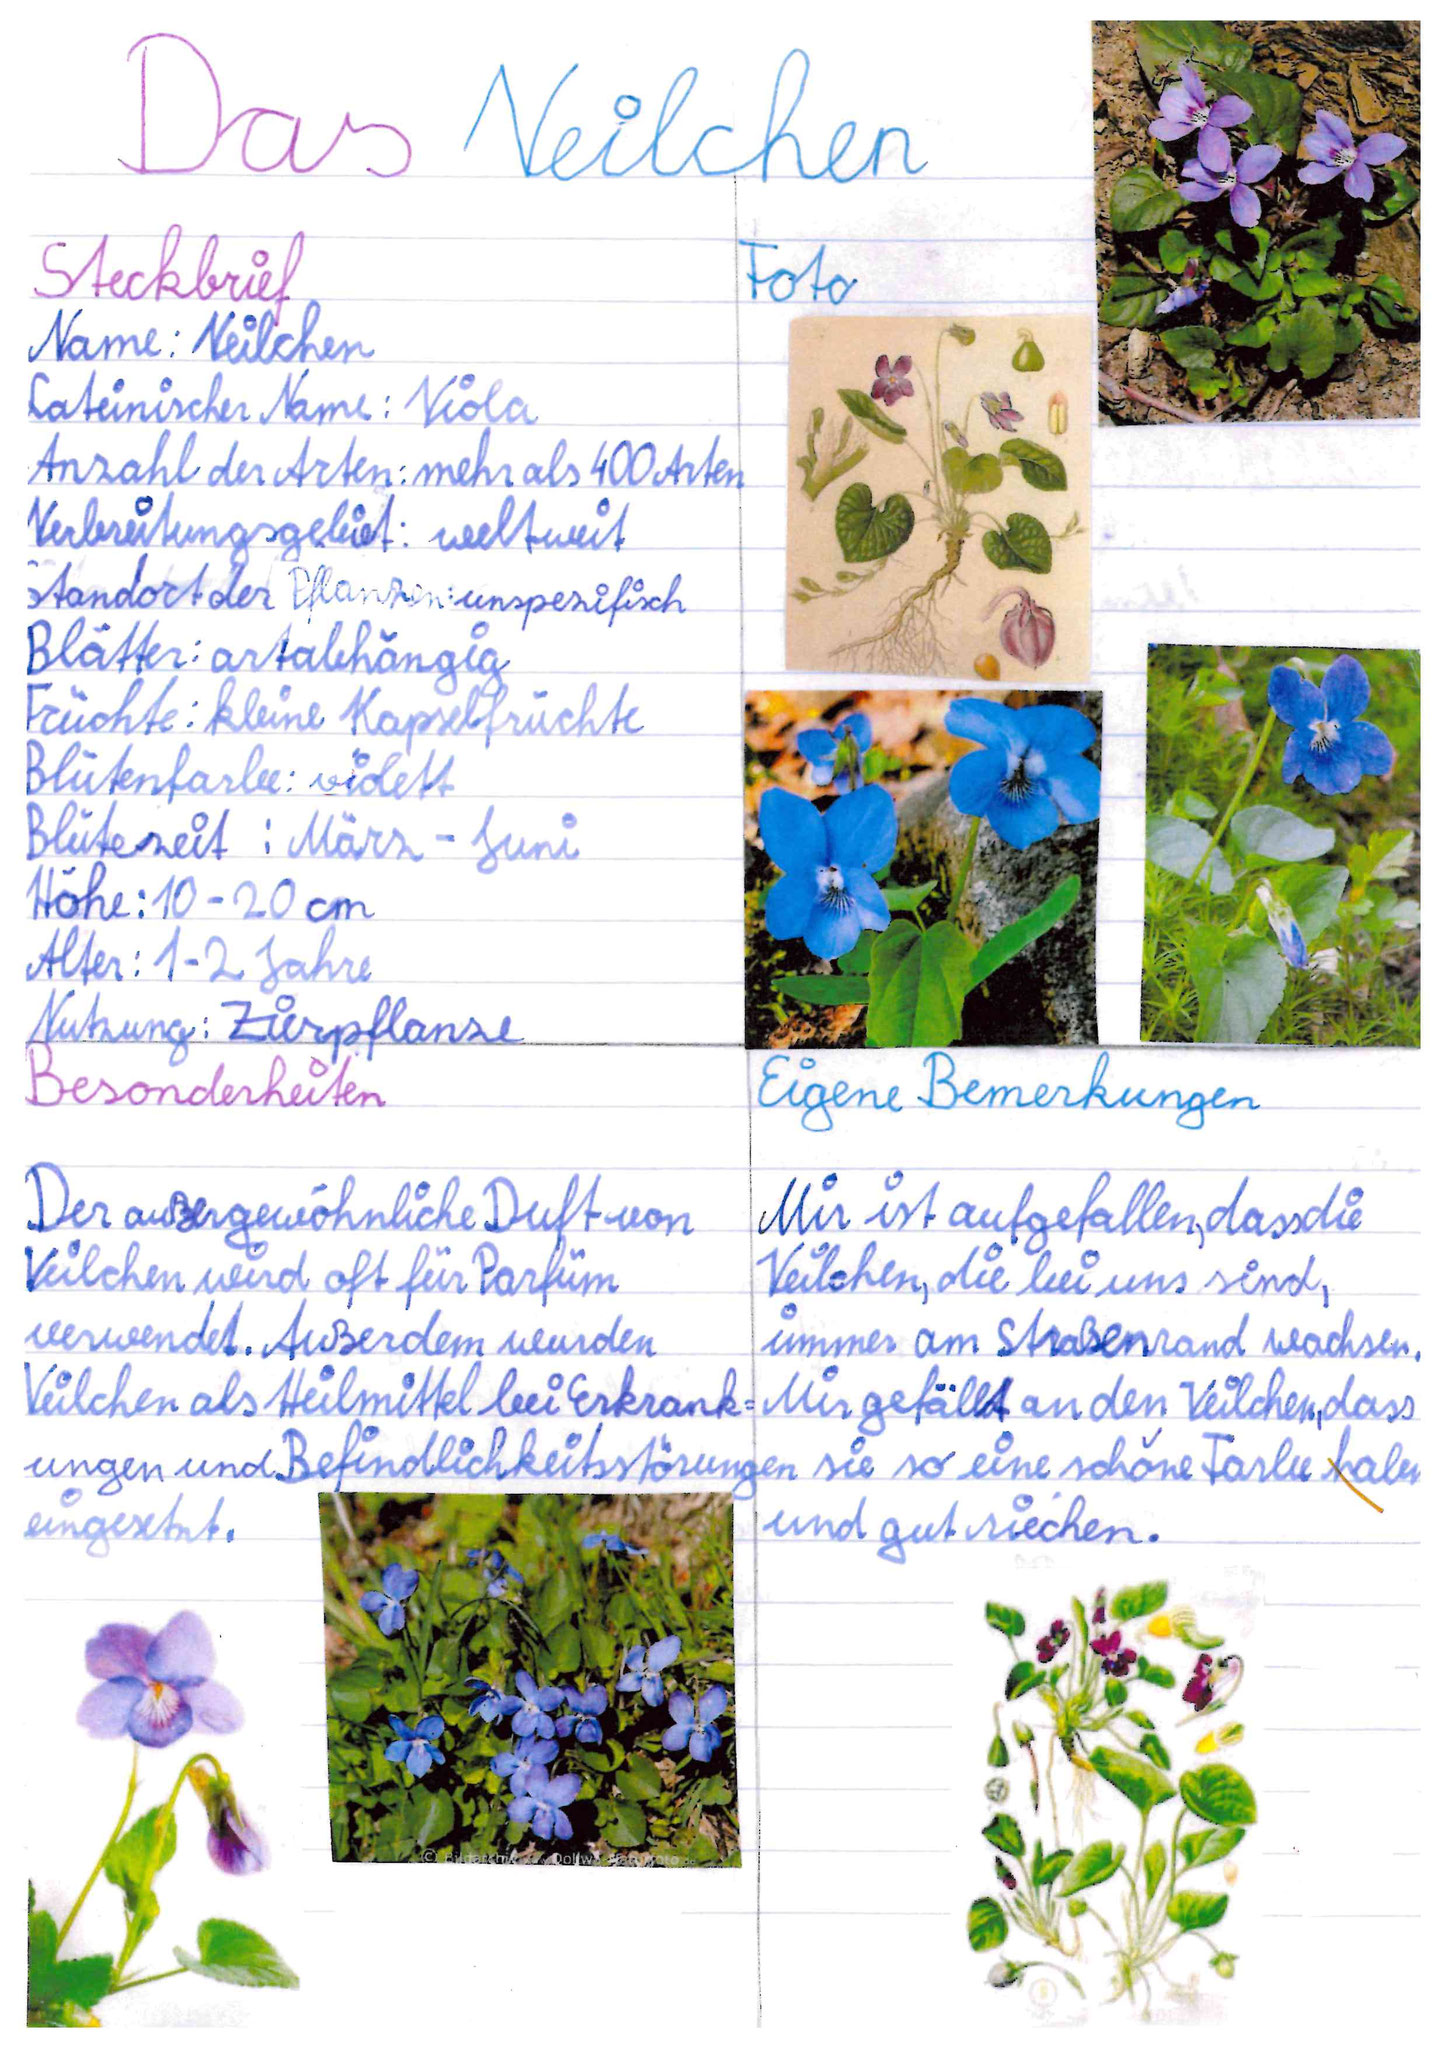 Das Veilchen
Steckbrief
Name: Veilchen
Lateinischer Name: Viola
Anzahl der Arten: mehr als 400 Arten
Verbreitungsgebiet: weltweit
Standort der Pflanzen: unspezifisch
Blätter: artabhängig
Früchte: kleine Kapselfrüchte
Blütenfarbe: violett
Blütezeit: März - Juni
Höhe: 10 - 20 cm
Alter: 1-2 Jahre
Nutzung: Zierpflanze
Foto
Besonderheiten
Der außergewöhnliche Duft von
Veilchen wird oft für Parfüm
verwendet. Außerdem wurden
Veilchen als Heilmittel bei Erkrank=
ungen und Befindlichkeitsstörungen
eingesetzt.
Eigene Bemerkungen
Mir ist aufgefallen, dass die
Veilchen, die bei uns sind,
immer am Straßenrand wachsen.
Mir gefällt an den Veilchen, dass
sie so eine schöne Farbe haben
und gut riechen.